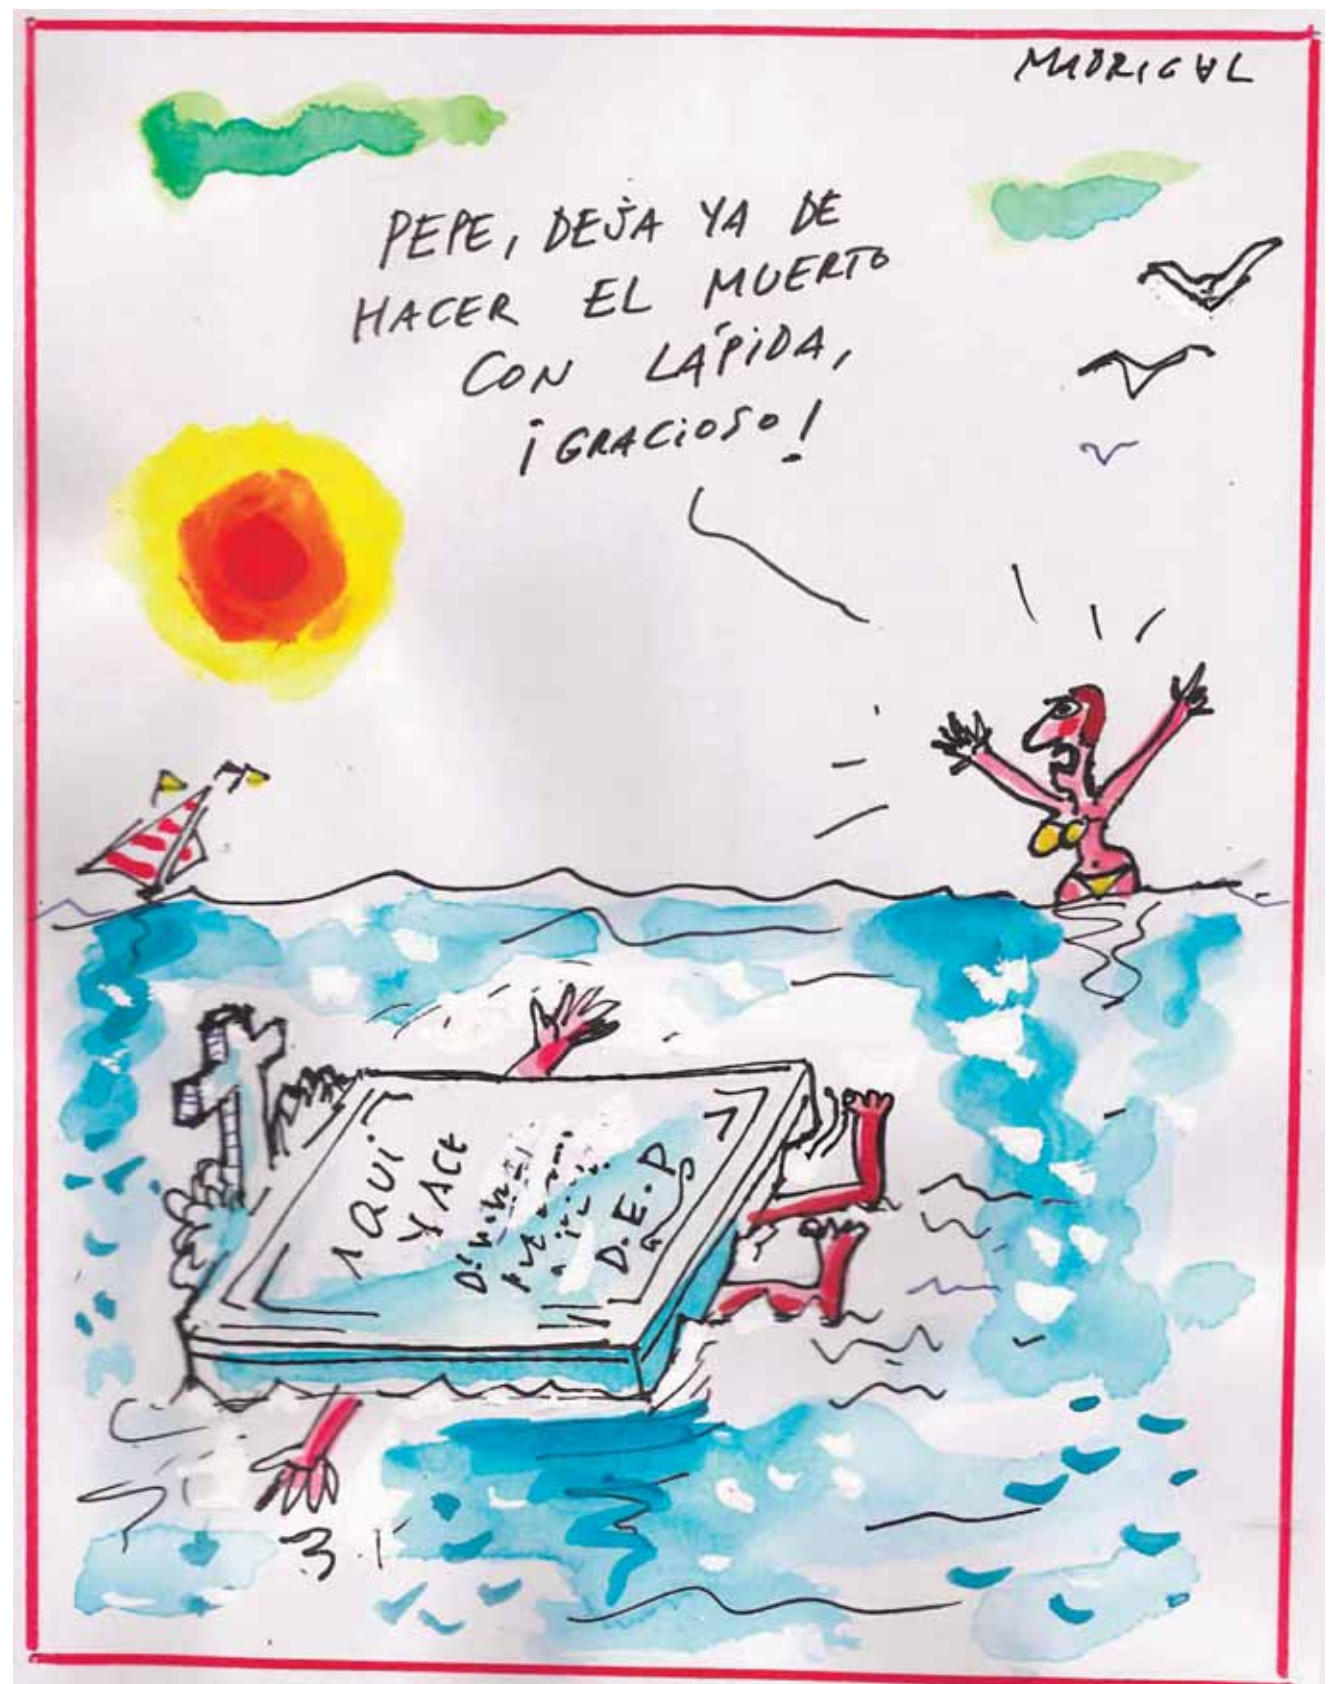 MADRIGAL
PEPE, DEJA YA DE
HACER EL MUERTO
CON LÁPIDA,
¡GRACIOSO!
AQUI
YACE
D.E.P.